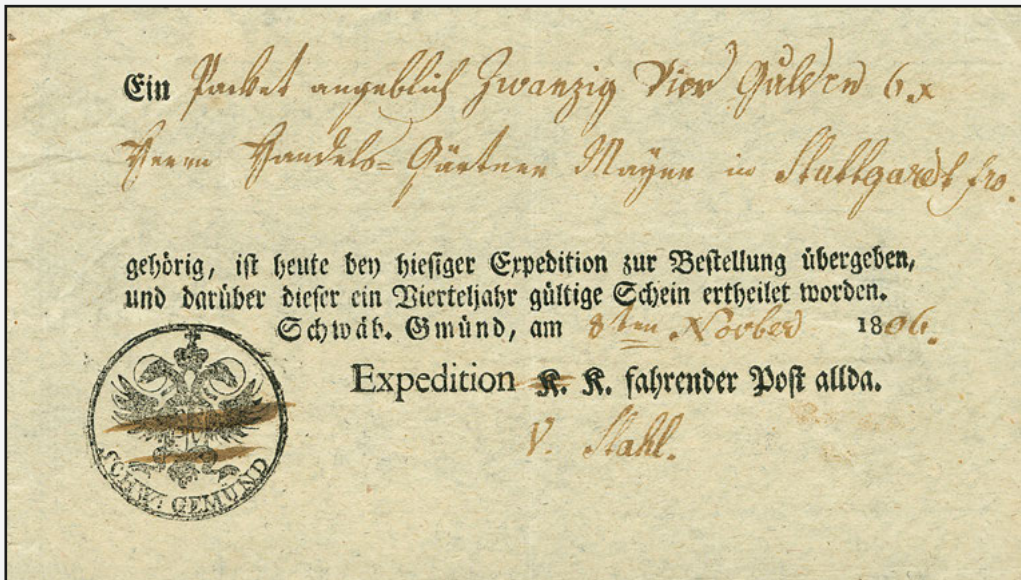 Ein Packet angeblich Zwanzig Vier Gulden 6 x
Herrn Handels=Gärtner Mayer in Stuttgardt fro.
gehörig, ist heute bey hiesiger Expedition zur Bestellung übergeben,
und darüber dieser ein Vierteljahr gültige Schein ertheilet worden.
Schwäb. Gmünd, am 8ten Novber 1806.
Expedition K. K. fahrender Post allda.
V. Stahl.
SCHW: GEMÜND